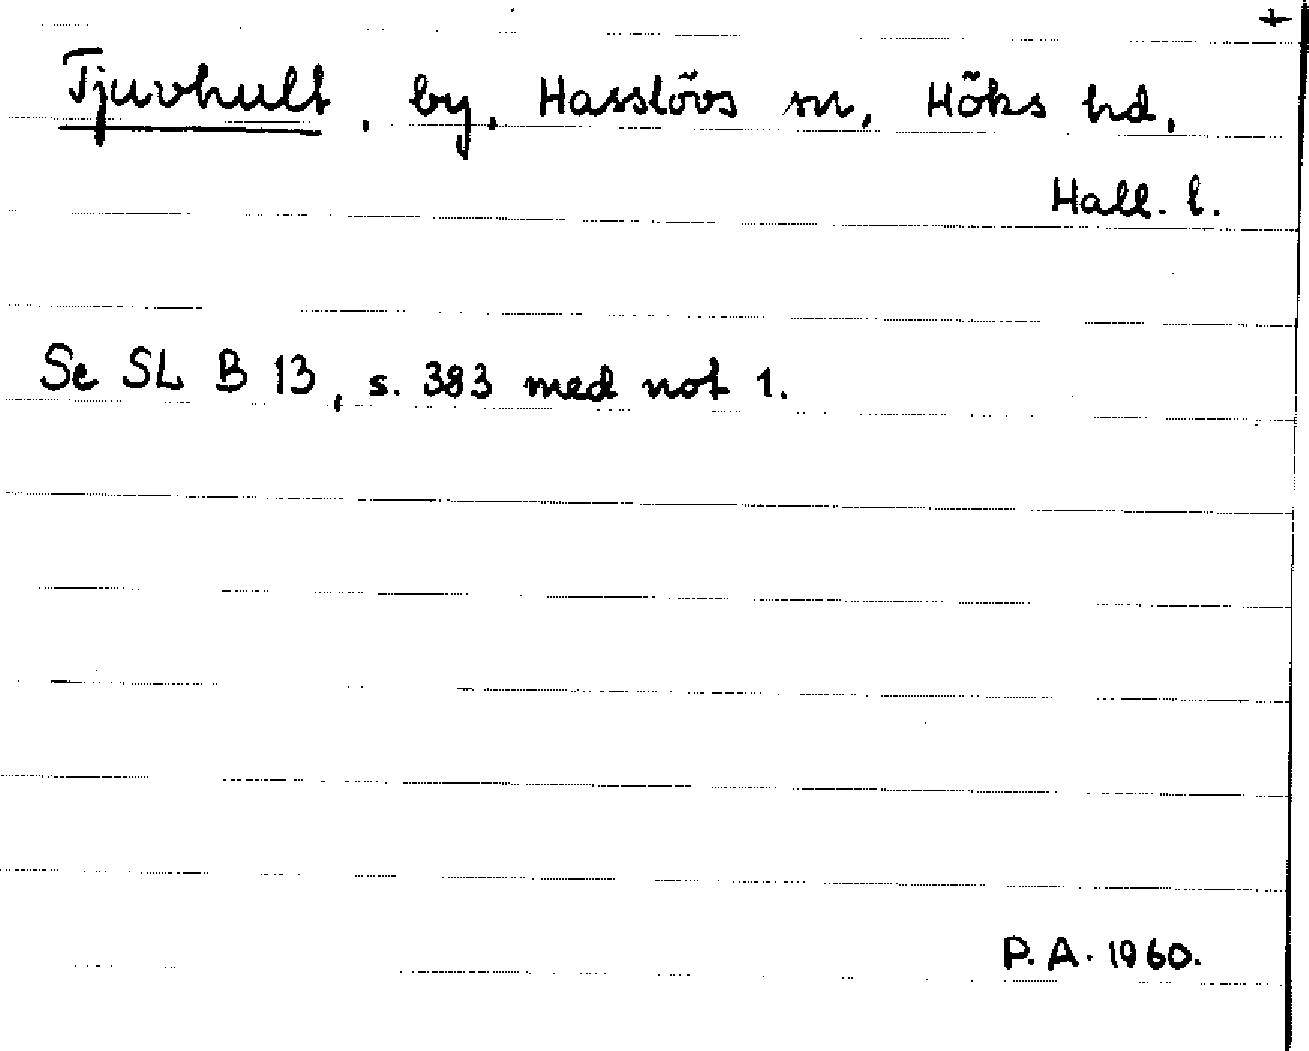 +
Tjuvhult, by, Hasslövs sn, Höks hd,
Hall. l.
Se SL B 13, s. 383 med not 1.
P. A. 1960.